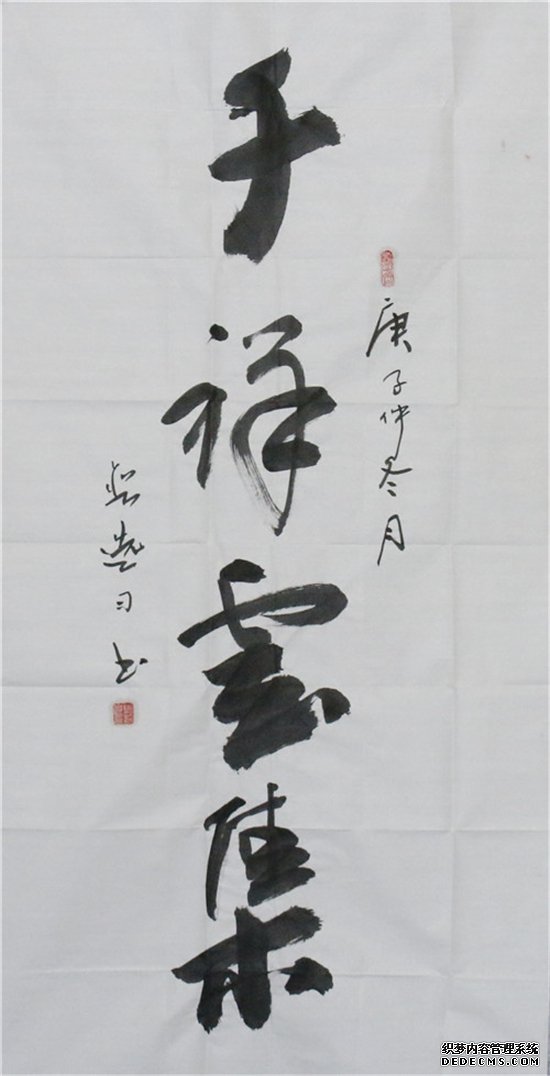 庚子仲冬月
千祥雲集
習书
织梦内容管理系统
DEDECMS.COM